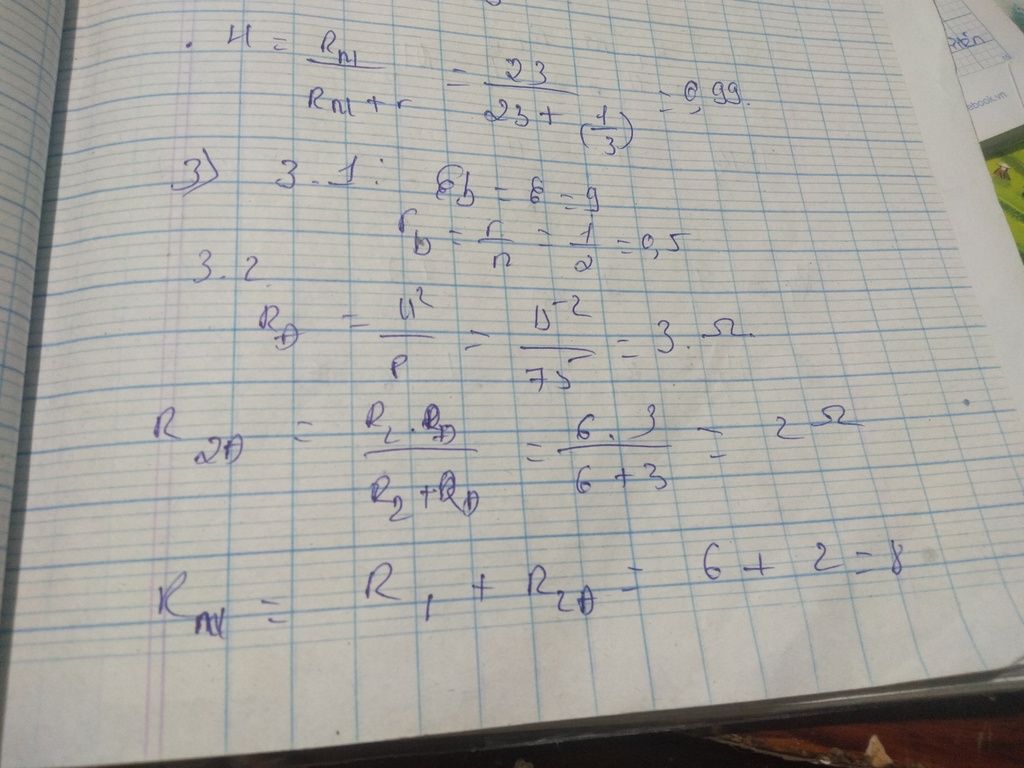 . H = Rₙₜ / (Rₙₜ + r) = 23 / (23 + (1/3)) = 0,99.
3) 3.1: Eb = E = 9
r_b = r/n = 1/2 = 0,5
3.2
R_Đ = U² / P = 15² / 75 = 3 . Ω.
R_2Đ = (R₂ . R_Đ) / (R₂ + R_Đ) = (6 . 3) / (6 + 3) = 2 Ω
Rₙₜ = R₁ + R_2Đ = 6 + 2 = 8
ebook.vn